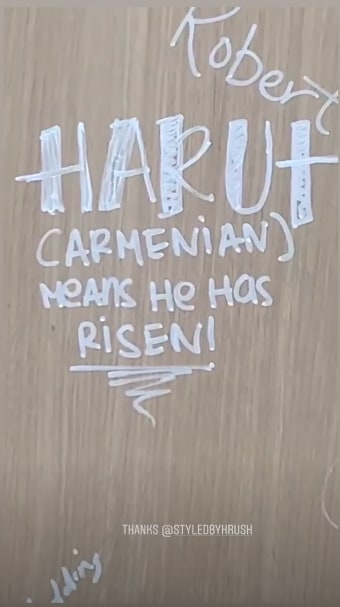 Robert
HARUT
(ARMENiAN)
MeANS He HAS
RiSEN!
THANKS @STYLEDBYHRUSH
dding